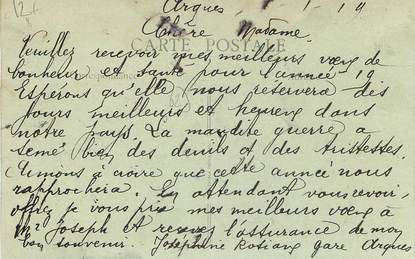 Arques 1.1.19
Chère Madame
CARTE POSTALE
Veuillez recevoir mes meilleurs voeux de
Correspondance
bonheur et santé pour l'année 19
Espérons qu'elle nous réservera des
jours meilleurs et heureux dans
notre pays. La maudite guerre a
semé bien des deuils et des tristesses.
Aimons à croire que cette année nous
rapprochera. En attendant vous revoir,
offrez je vous prie mes meilleurs voeux à
Mr Joseph et recevez l'assurance de mon
bon souvenir. Joséphine gare Arques